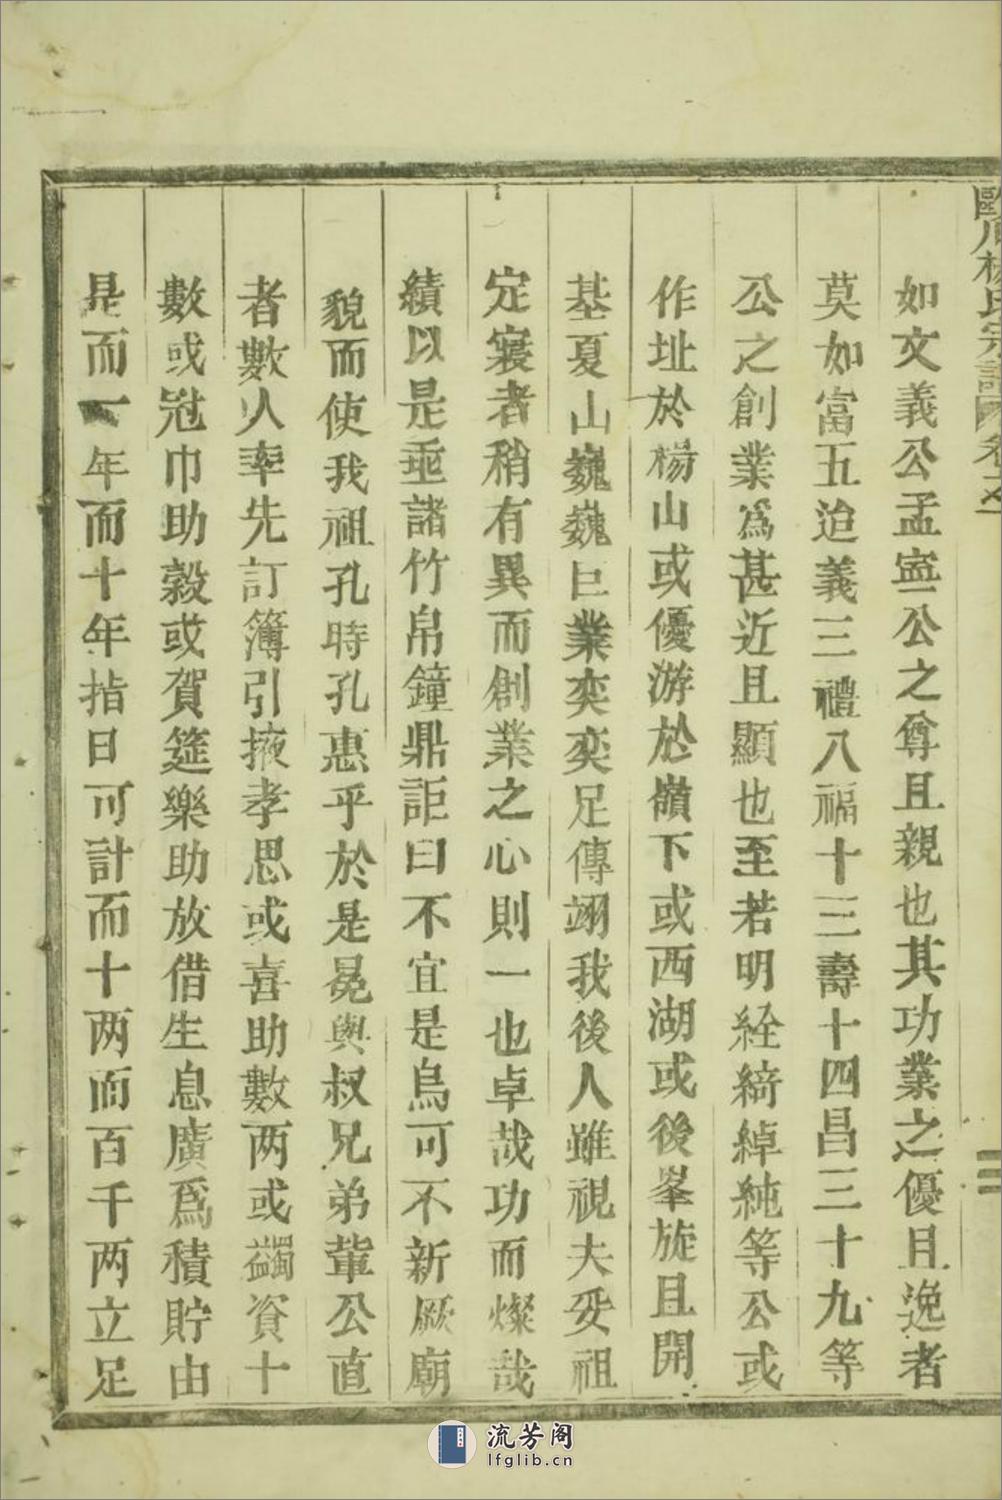 歐川楊氏宗譜 卷之一
如文義公孟寍公之尊且親也其功業之優且逸者
莫如富五迨義三禮八福十三壽十四昌三十九等
公之創業爲甚近且顯也至若明経綺綽純等公或
作址於楊山或優游於嶺下或西湖或後峯旋且開
基夏山巍巍巨業奕奕足傳翊我後人雖視夫安祖
定寢者稍有異而創業之心則一也卓哉功而燦哉
績以是垂諸竹帛鐘鼎詎曰不宜是烏可不新厥廟
貌而使我祖孔時孔惠乎於是晃與叔兄弟輩公直
者數人率先訂簿引掖孝思或喜助數两或蠲資十
數或冠巾助榖或賀筵樂助放借生息廣爲積貯由
是而一年而十年指日可計而十两而百千两立足
流芳阁
lfglib.cn